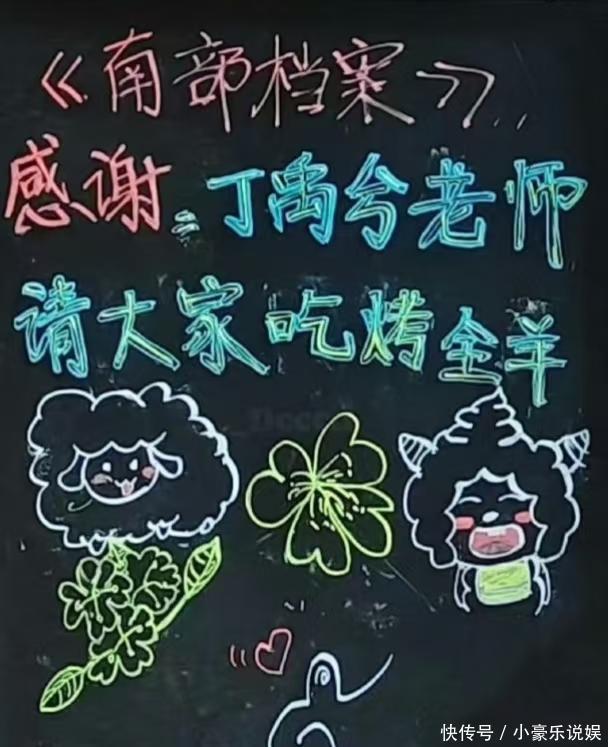 《南部档案》...
感谢:丁禹兮老师
请大家吃烤全羊
快传号/小豪乐说娱